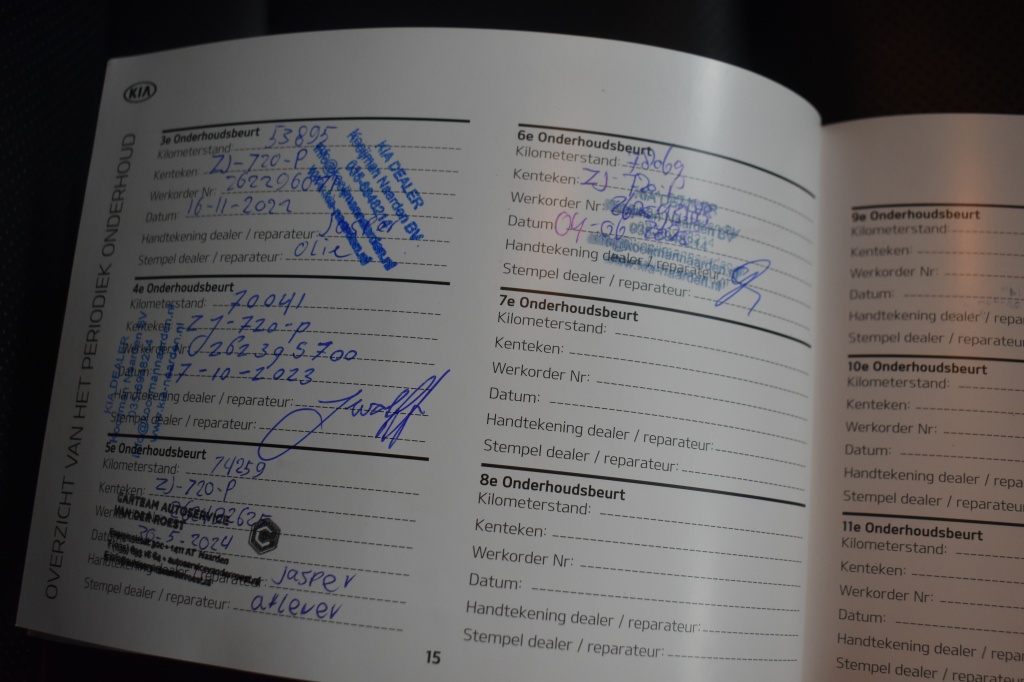 KIA
OVERZICHT VAN HET PERIODIEK ONDERHOUD
3e Onderhoudsbeurt
Kilometerstand: 53895
Kenteken: ZJ-720-P
Werkorder Nr:
Datum: 16-11-2021
Handtekening dealer / reparateur:
Stempel dealer / reparateur: Olie
KIA DEALER
Kooijman Naarden BV
4e Onderhoudsbeurt
Kilometerstand: 70041
Kenteken: ZJ-720-P
Werkorder Nr: 262395700
Datum: 17-10-2023
Handtekening dealer / reparateur:
Stempel dealer / reparateur:
KIA DEALER
Kooijman Naarden BV
5e Onderhoudsbeurt
Kilometerstand: 74259
Kenteken: ZJ-720-P
Datum: -5-2024
Handtekening dealer / reparateur: jasper
Stempel dealer / reparateur:
CARTEAM AUTOSERVICE
VAN DER ROEST
1411 AT Naarden
15
6e Onderhoudsbeurt
Kilometerstand:
Kenteken: ZJ-
Werkorder Nr:
Datum: 04-06-
Handtekening dealer / reparateur:
Stempel dealer / reparateur:
7e Onderhoudsbeurt
Kilometerstand:
Kenteken:
Werkorder Nr:
Datum:
Handtekening dealer / reparateur:
Stempel dealer / reparateur:
8e Onderhoudsbeurt
Kilometerstand:
Kenteken:
Werkorder Nr:
Datum:
Handtekening dealer / reparateur:
Stempel dealer / reparateur:
9e Onderhoudsbeurt
Kilometerstand:
Kenteken:
Werkorder Nr:
Datum:
Handtekening dealer / repara
Stempel dealer / reparateu
10e Onderhoudsbeurt
Kilometerstand:
Kenteken:
Werkorder Nr:
Datum:
Handtekening dealer / repara
Stempel dealer / reparate
11e Onderhoudsbeurt
Kilometerstand:
Kenteken:
Werkorder Nr:
Datum:
Handtekening dealer / repa
Stempel dealer / reparat